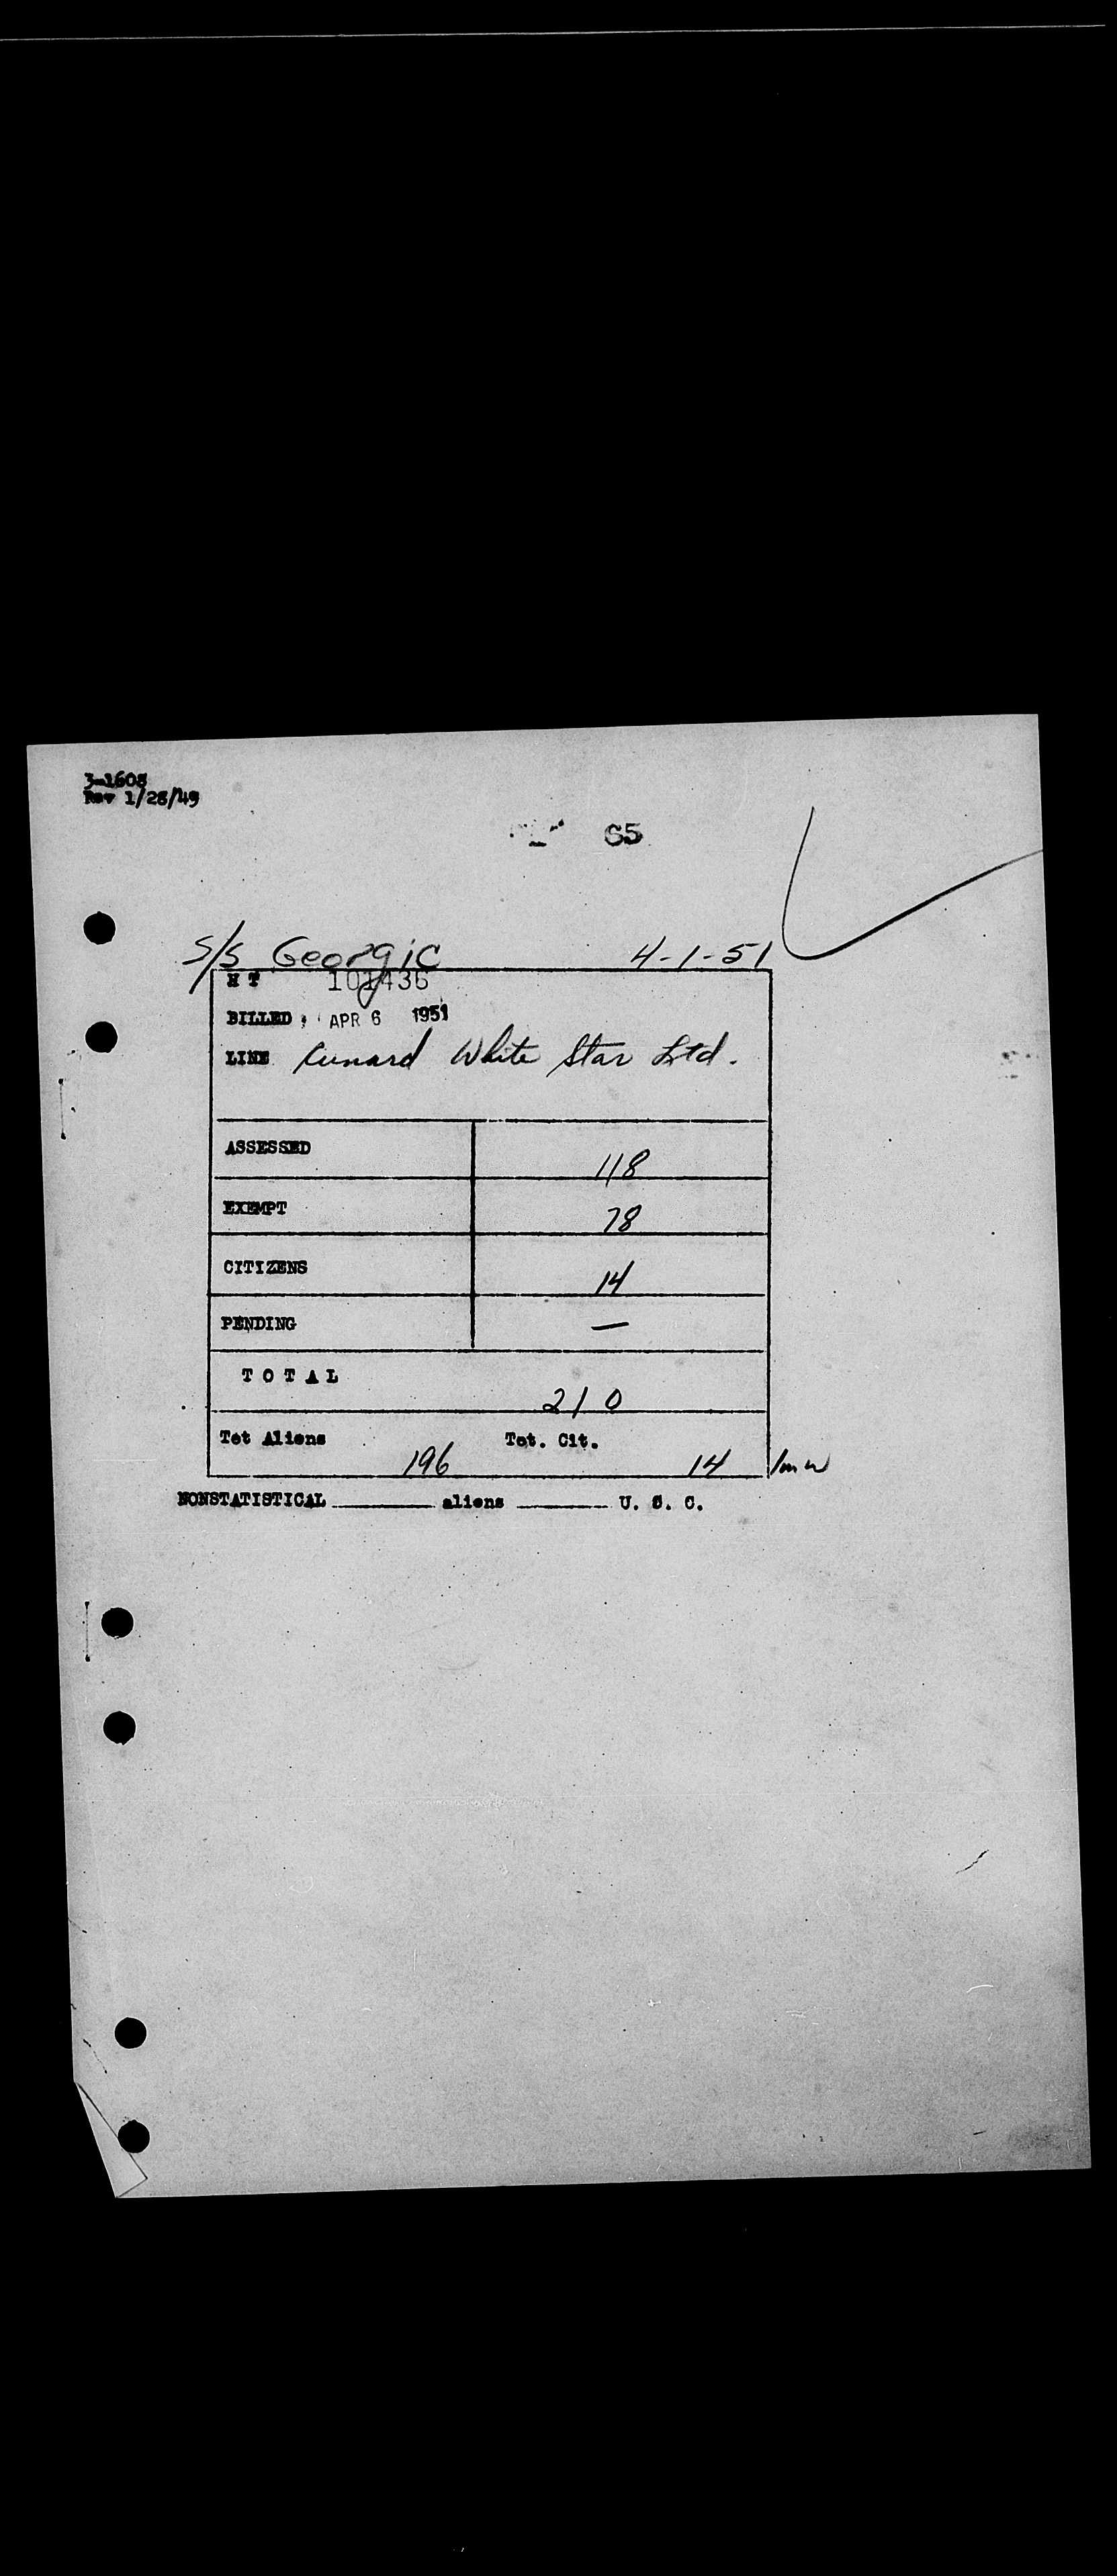 3-1608
Rev 1/28/49
65
S/S Georgic 4-1-51
H T 101436
BILLED APR 6 1951
LINE Cunard White Star Ltd.
ASSESSED 118
EXEMPT 78
CITIZENS 14
PENDING —
TOTAL 210
Tot Aliens 196 Tot. Cit. 14
NONSTATISTICAL ________ aliens ________ U. S. C.